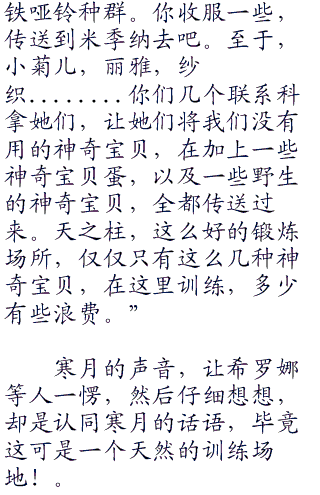 铁哑铃种群。你收服一些，
传送到米季纳去吧。至于，
小菊儿，丽雅，纱
织........你们几个联系科
拿她们，让她们将我们没有
用的神奇宝贝，在加上一些
神奇宝贝蛋，以及一些野生
的神奇宝贝，全都传送过
来。天之柱，这么好的锻炼
场所，仅仅只有这么几种神
奇宝贝，在这里训练，多少
有些浪费。”
寒月的声音，让希罗娜
等人一愣，然后仔细想想，
却是认同寒月的话语，毕竟
这可是一个天然的训练场
地！。